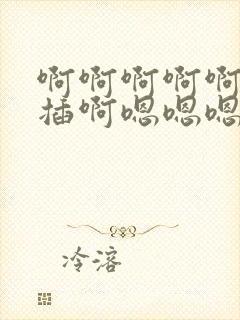 啊啊啊啊啊
插啊嗯嗯嗯
冷溶